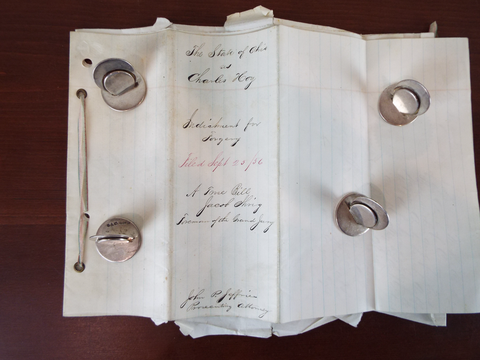 The State of Ohio
vs
Charles Hoy
Indictment for
Forgery
Filed Sept 25/86
A True Bill,
Jacob
Foreman of the Grand Jury
John P.
Prosecuting Attorney